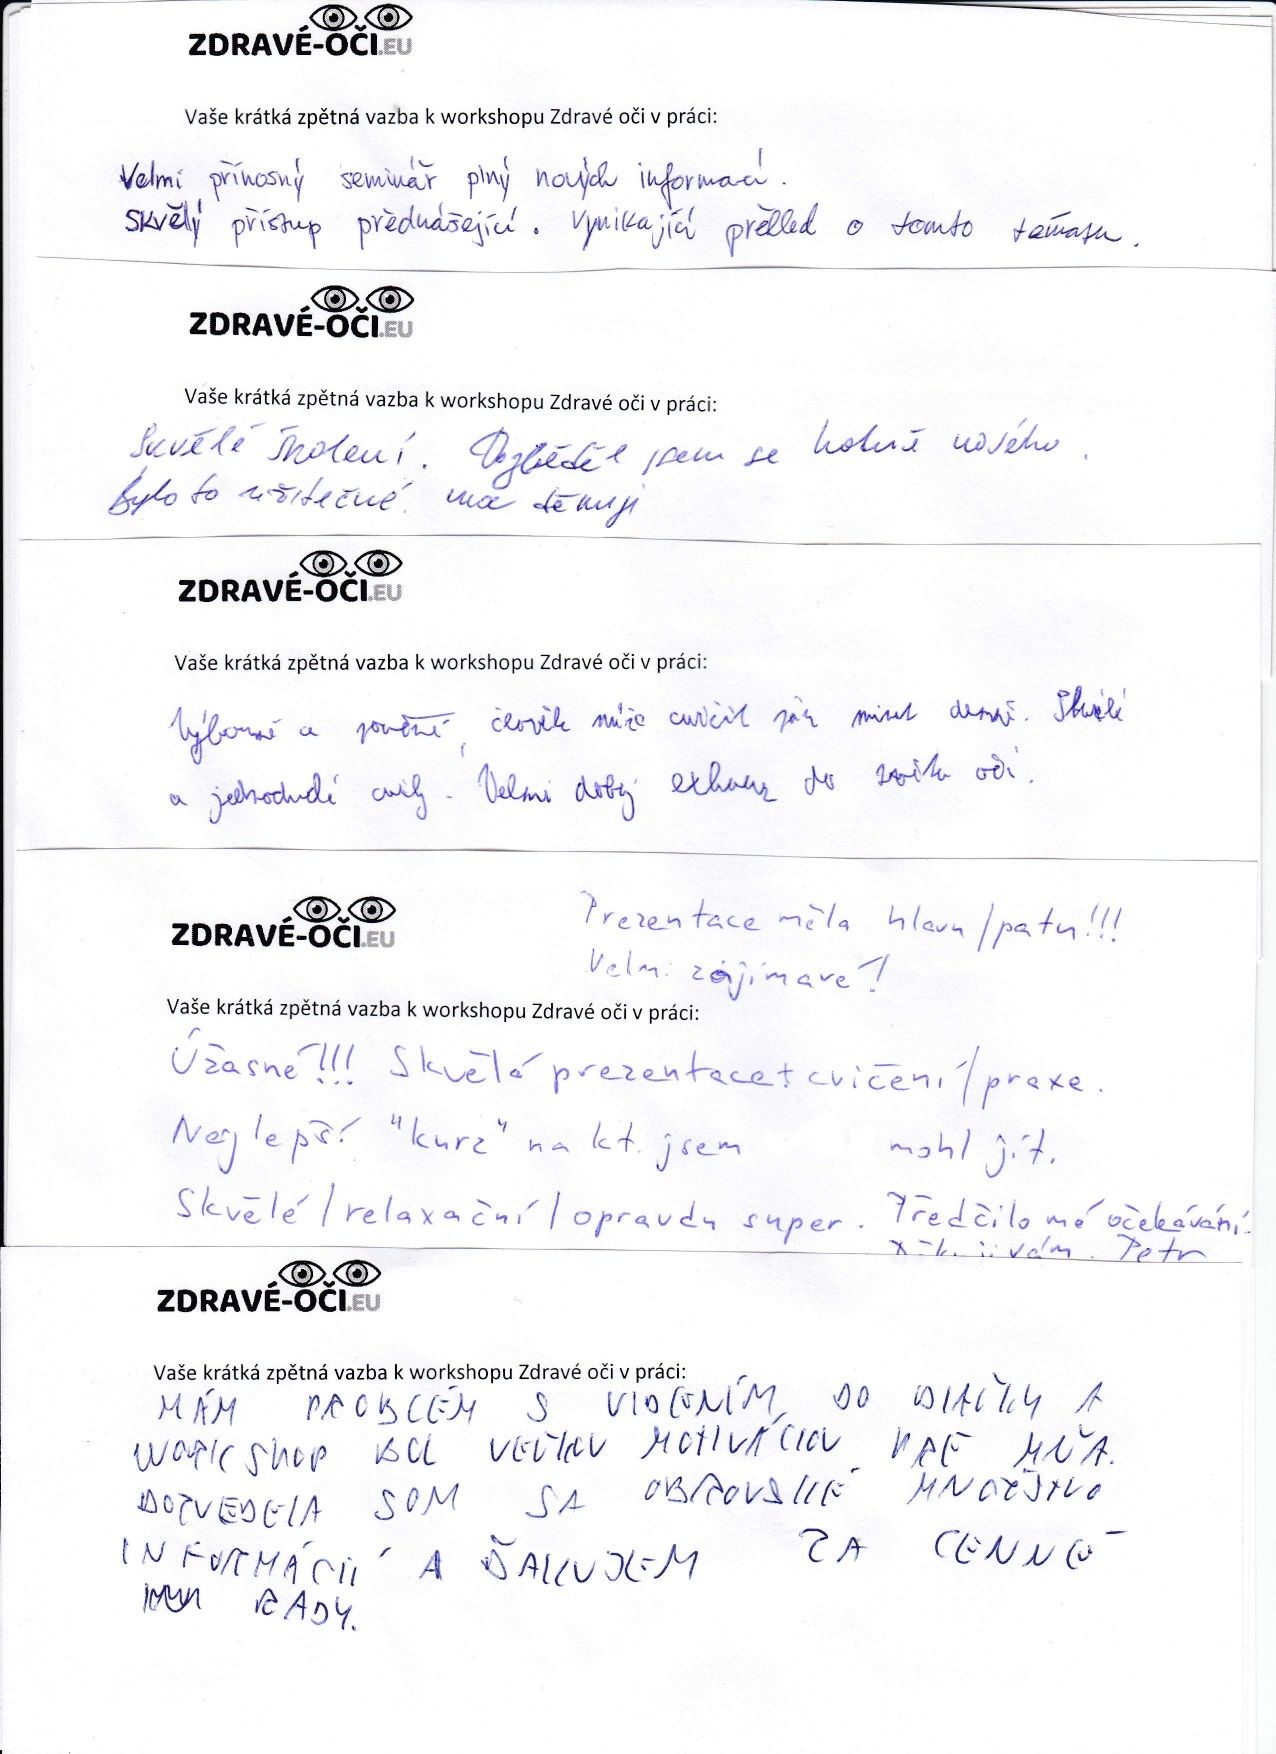 ZDRAVÉ-OČI.EU
Vaše krátká zpětná vazba k workshopu Zdravé oči v práci:
Velmi přínosný seminář plný nových informací.
Skvělý přístup přednášející. Vynikající přehled o tomto tématu.
ZDRAVÉ-OČI.EU
Vaše krátká zpětná vazba k workshopu Zdravé oči v práci:
Skvělé školení. Dozvěděl jsem se hodně nového.
Bylo to užitečné. děkuji
ZDRAVÉ-OČI.EU
Vaše krátká zpětná vazba k workshopu Zdravé oči v práci:
Výborné a poučné, člověk může cvičit pár minut denně. Skvělé
a jednoduché cviky. Velmi dobrý exkurz do světa očí.
ZDRAVÉ-OČI.EU
Prezentace měla hlavu/patu!!!
Velmi zajímavé!
Vaše krátká zpětná vazba k workshopu Zdravé oči v práci:
Úžasné!!! Skvělá prezentace + cvičení/praxe.
Nejlepší "kurz" na kt. jsem mohl jít.
Skvělé/relaxační/opravdu super. Předčilo mé očekávání.
Děkuji vám. Petr
ZDRAVÉ-OČI.EU
Vaše krátká zpětná vazba k workshopu Zdravé oči v práci:
MÁM PROBLÉM S VIDENÍM DO DIAĽKY A
WORKSHOP BOL VEĽKOU MOTIVÁCIOU PRE MŇA.
DOZVEDELA SOM SA OBROVSKÉ MNOŽSTVO
INFORMÁCIÍ A ĎAKUJEM ZA CENNÉ
RADY.